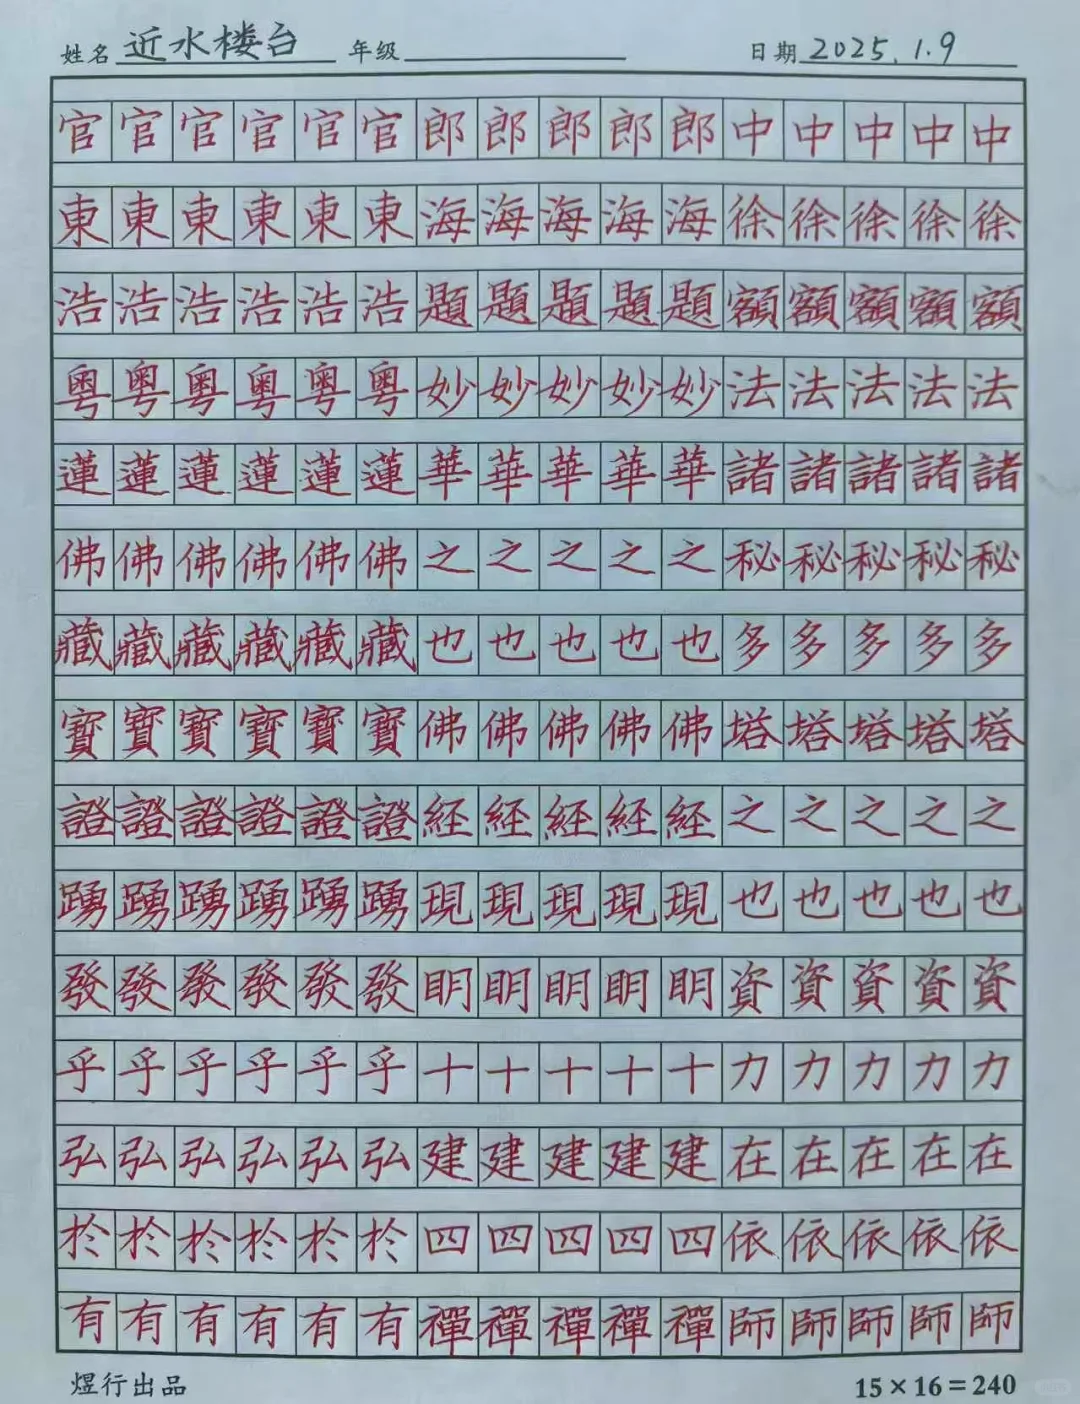 姓名 近水楼台 年级 日期 2025.1.9
官官官官官官郎郎郎郎郎中中中中中
東東東東東東海海海海海徐徐徐徐徐
浩浩浩浩浩浩題題題題題額額額額額
粤粤粤粤粤粤妙妙妙妙妙法法法法法
蓮蓮蓮蓮蓮蓮華華華華華諸諸諸諸諸
佛佛佛佛佛佛之之之之之秘秘秘秘秘
藏藏藏藏藏藏也也也也也多多多多多
寶寶寶寶寶寶佛佛佛佛佛塔塔塔塔塔
證證證證證證経経経経経之之之之之
踴踴踴踴踴踴現現現現現也也也也也
發發發發發發明明明明明資資資資資
乎乎乎乎乎乎十十十十十力力力力力
弘弘弘弘弘弘建建建建建在在在在在
於於於於於於四四四四四依依依依依
有有有有有有禪禪禪禪禪師師師師師
煜行出品 15×16=240